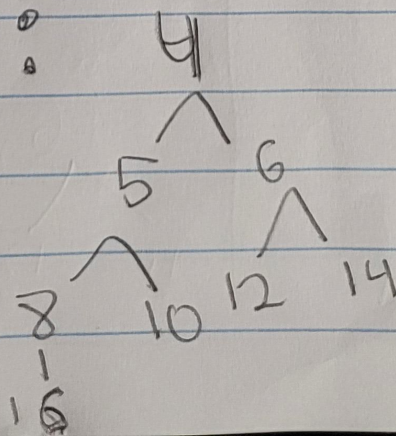 :
4
5 6
8 10 12 14
16